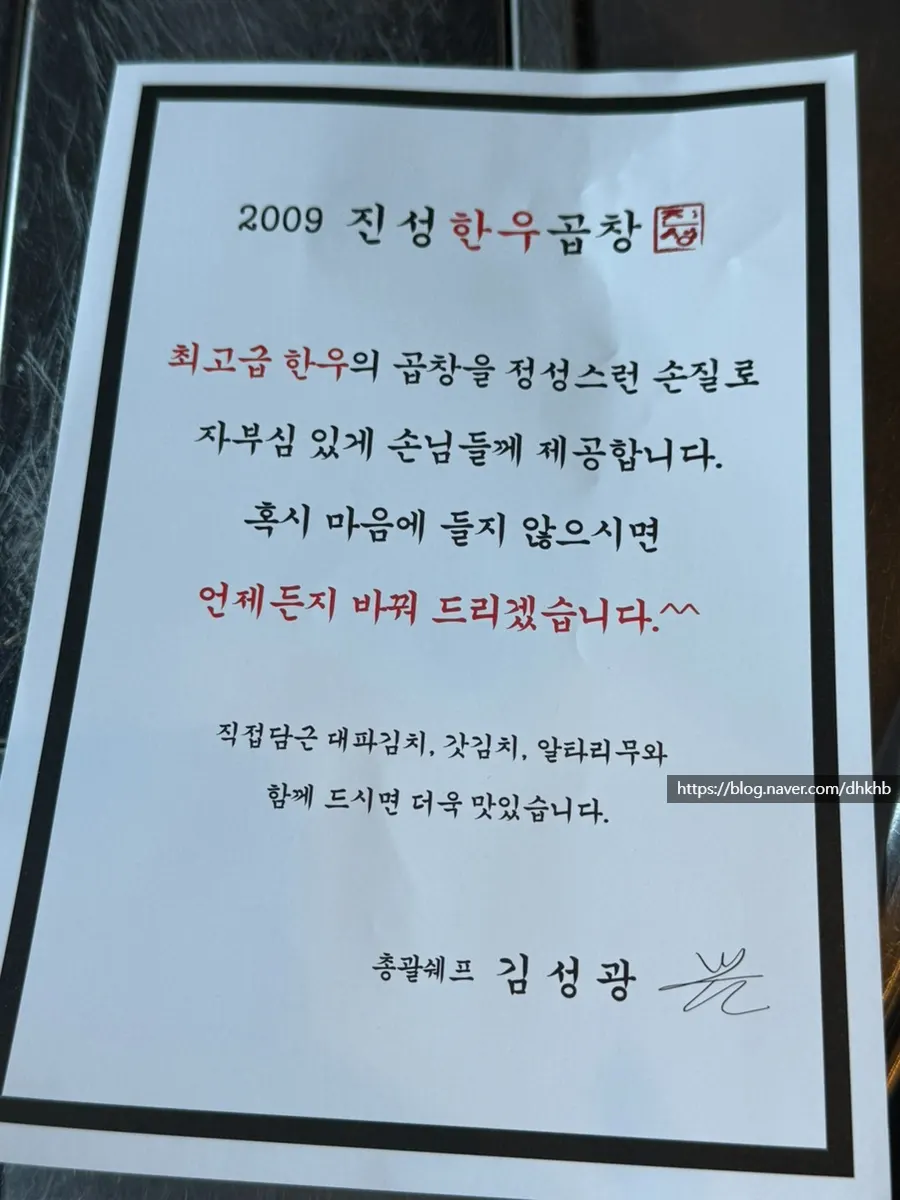 2009 진성한우곱창 진성
최고급 한우의 곱창을 정성스런 손질로
자부심 있게 손님들께 제공합니다.
혹시 마음에 들지 않으시면
언제든지 바꿔 드리겠습니다.^^
직접담근 대파김치, 갓김치, 알타리무와
https://blog.naver.com/dhkhb
함께 드시면 더욱 맛있습니다.
총괄쉐프 김성광